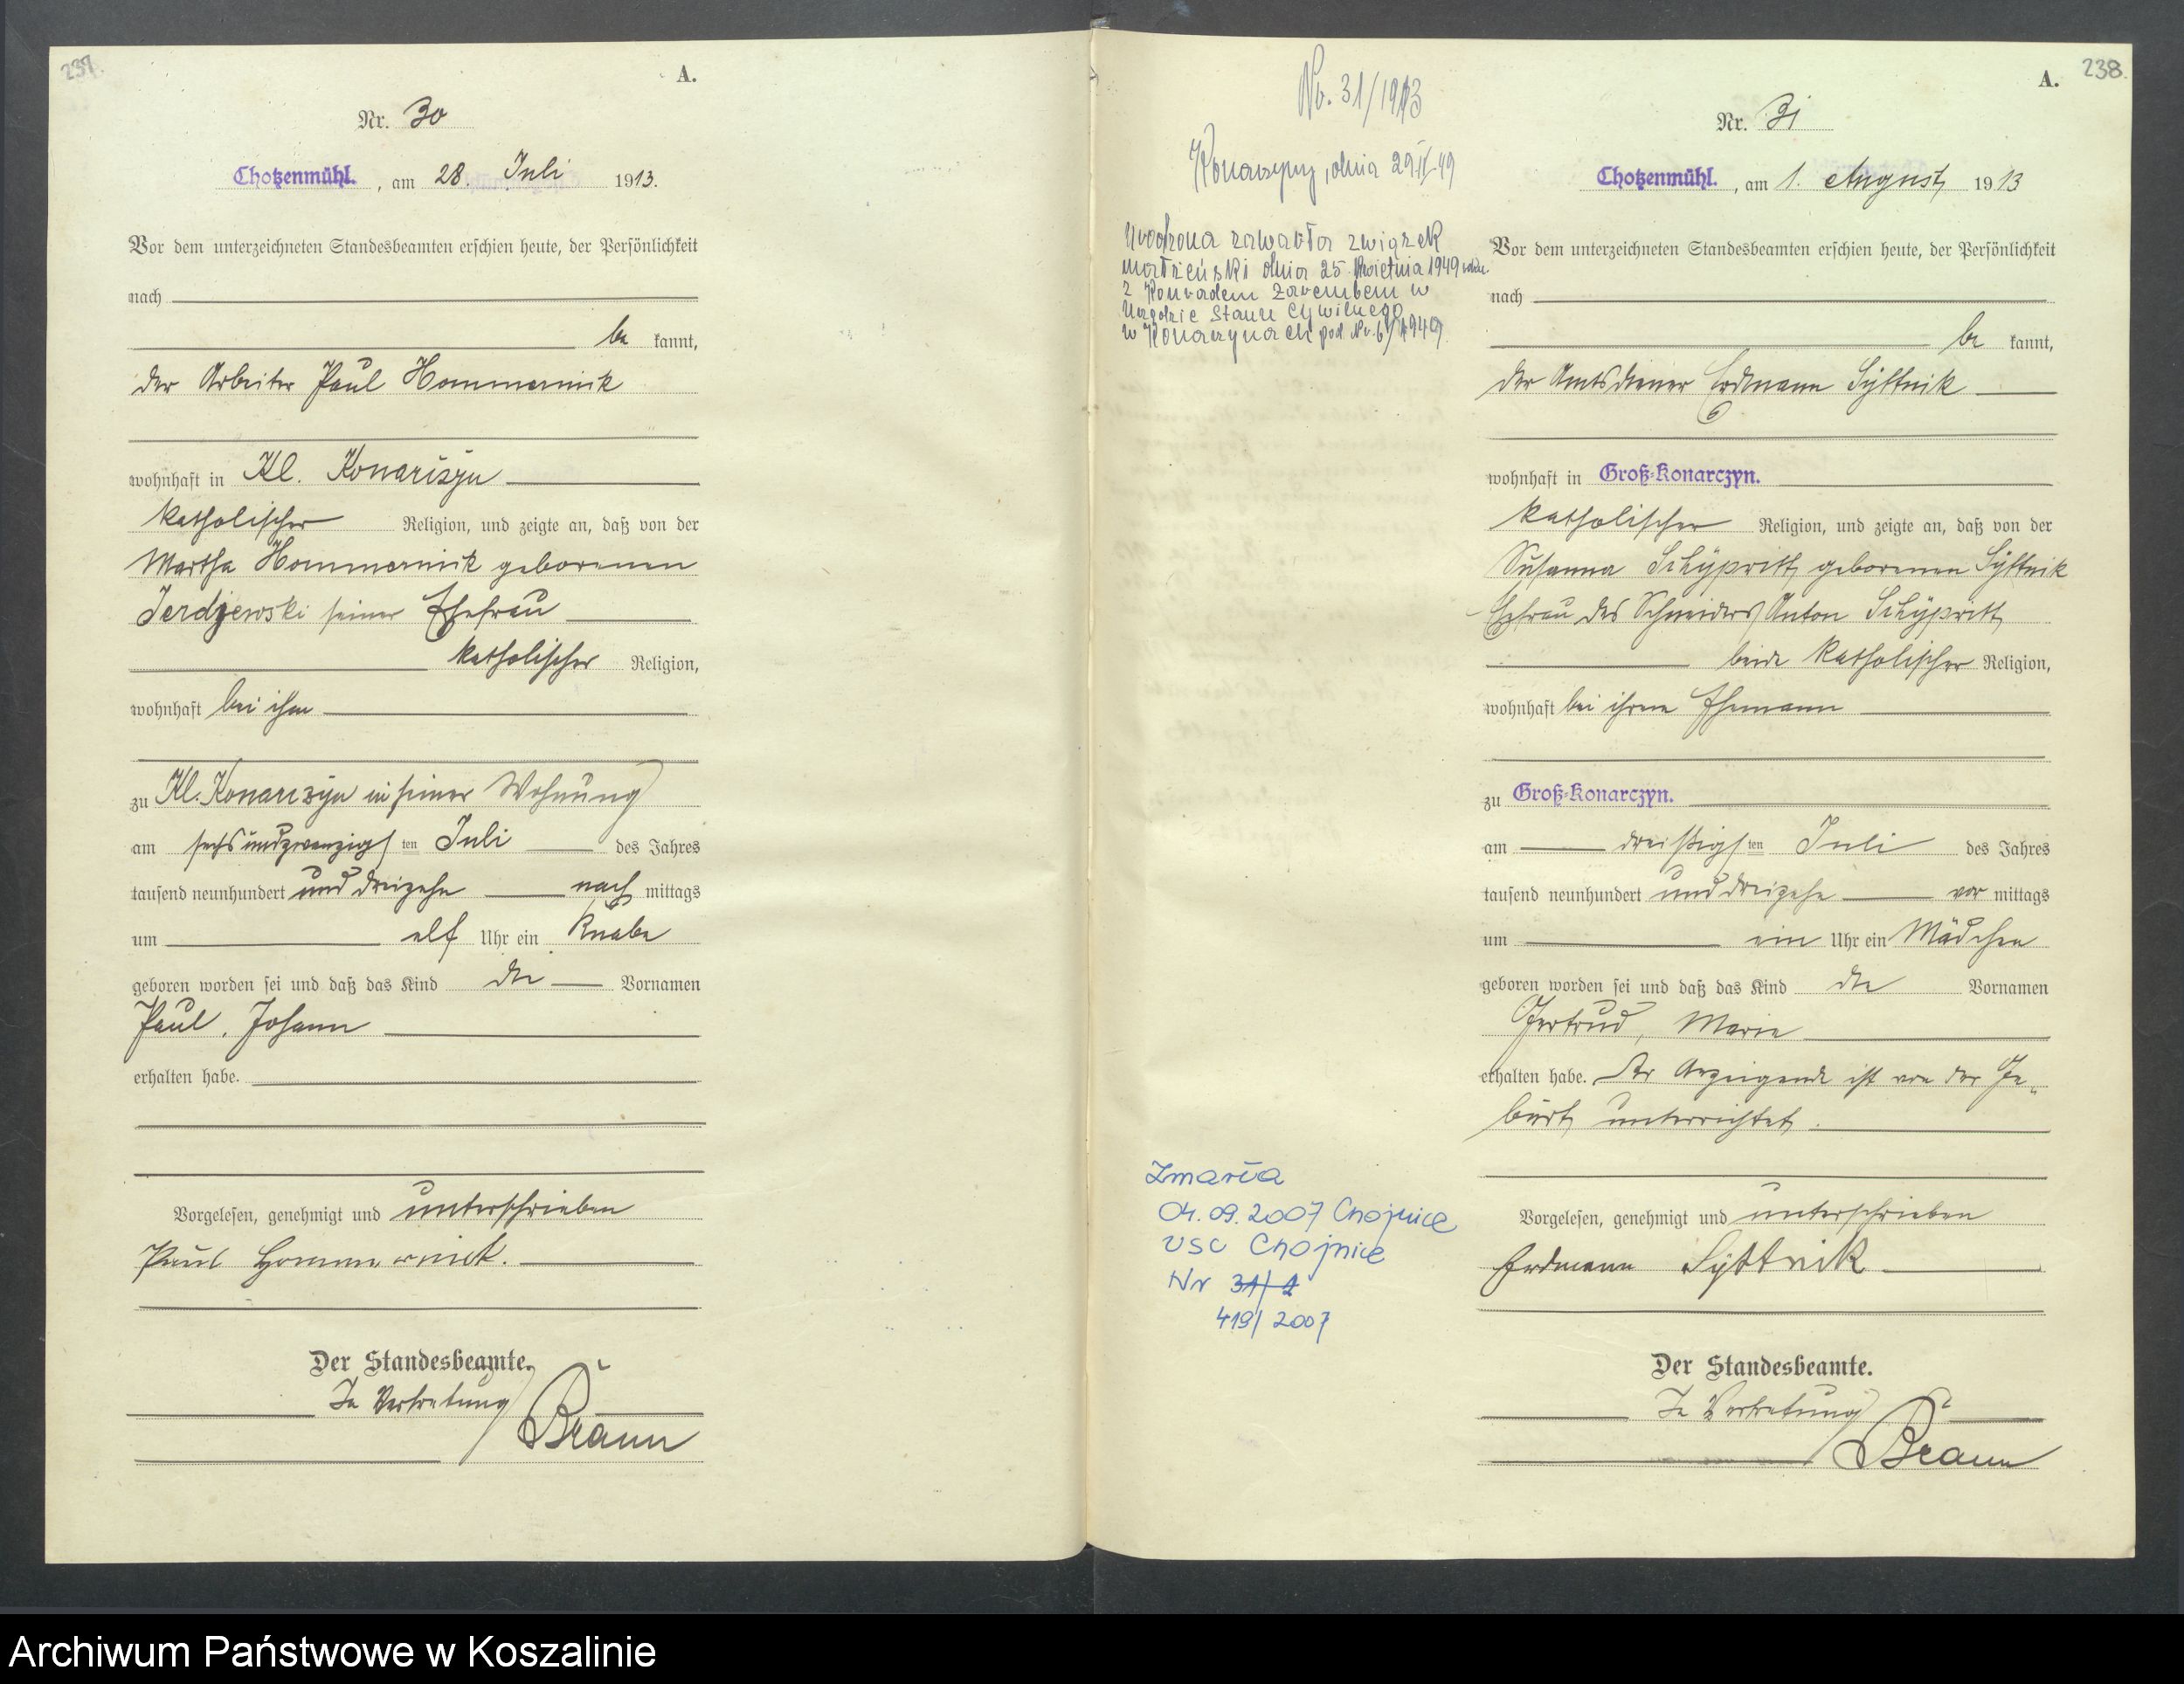 237.
A.
Nr. 30
Chotzenmühl., am 28. Juli 1913.
Vor dem unterzeichneten Standesbeamten erschien heute, der Persönlichkeit
nach
be kannt,
der Arbeiter Paul Hommernik
wohnhaft in Kl. Konarczyn
katholischer Religion, und zeigte an, daß von der
Martha Hommernik geborenen
seiner Ehefrau
katholischer Religion,
wohnhaft bei ihm
zu Kl. Konarczyn in seiner Wohnung
am sechsundzwanzigsten Juli des Jahres
tausend neunhundert und dreizehn nach mittags
um elf Uhr ein Knabe
geboren worden sei und daß das Kind die Vornamen
Paul, Johann
erhalten habe.
Vorgelesen, genehmigt und unterschrieben
Paul Hommernik.
Der Standesbeamte.
In Vertretung
Braun
Nr. 31/1913
Konarzyny, dnia 29.IV.49
Urodzona zawarła związek
małżeński dnia 25 kwietnia 1949
z Konradem Zarembem w
Urzędzie Stanu Cywilnego
w Konarzynach pod Nr. 6/1949.
Zmarła
04.09.2007 Chojnice
USC Chojnice
Nr 31/1
419/2007
A.
238.
Nr. 31
Chotzenmühl., am 1. August 1913
Vor dem unterzeichneten Standesbeamten erschien heute, der Persönlichkeit
nach
be kannt,
der Amtsdiener Erdmann Syttnik
wohnhaft in Groß-Konarczyn.
katholischer Religion, und zeigte an, daß von der
Susanna geborenen Syttnik
Ehefrau des Schneiders Anton
beide katholischer Religion,
wohnhaft bei ihrem Ehemann
zu Groß-Konarczyn.
am dreißigsten Juli des Jahres
tausend neunhundert und dreizehn vor mittags
um ein Uhr ein Mädchen
geboren worden sei und daß das Kind die Vornamen
Gertrud, Marie
erhalten habe. Der Anzeigende ist von der Ge-
burt unterrichtet.
Vorgelesen, genehmigt und unterschrieben
Erdmann Syttnik
Der Standesbeamte.
In Vertretung
Braun
Archiwum Państwowe w Koszalinie